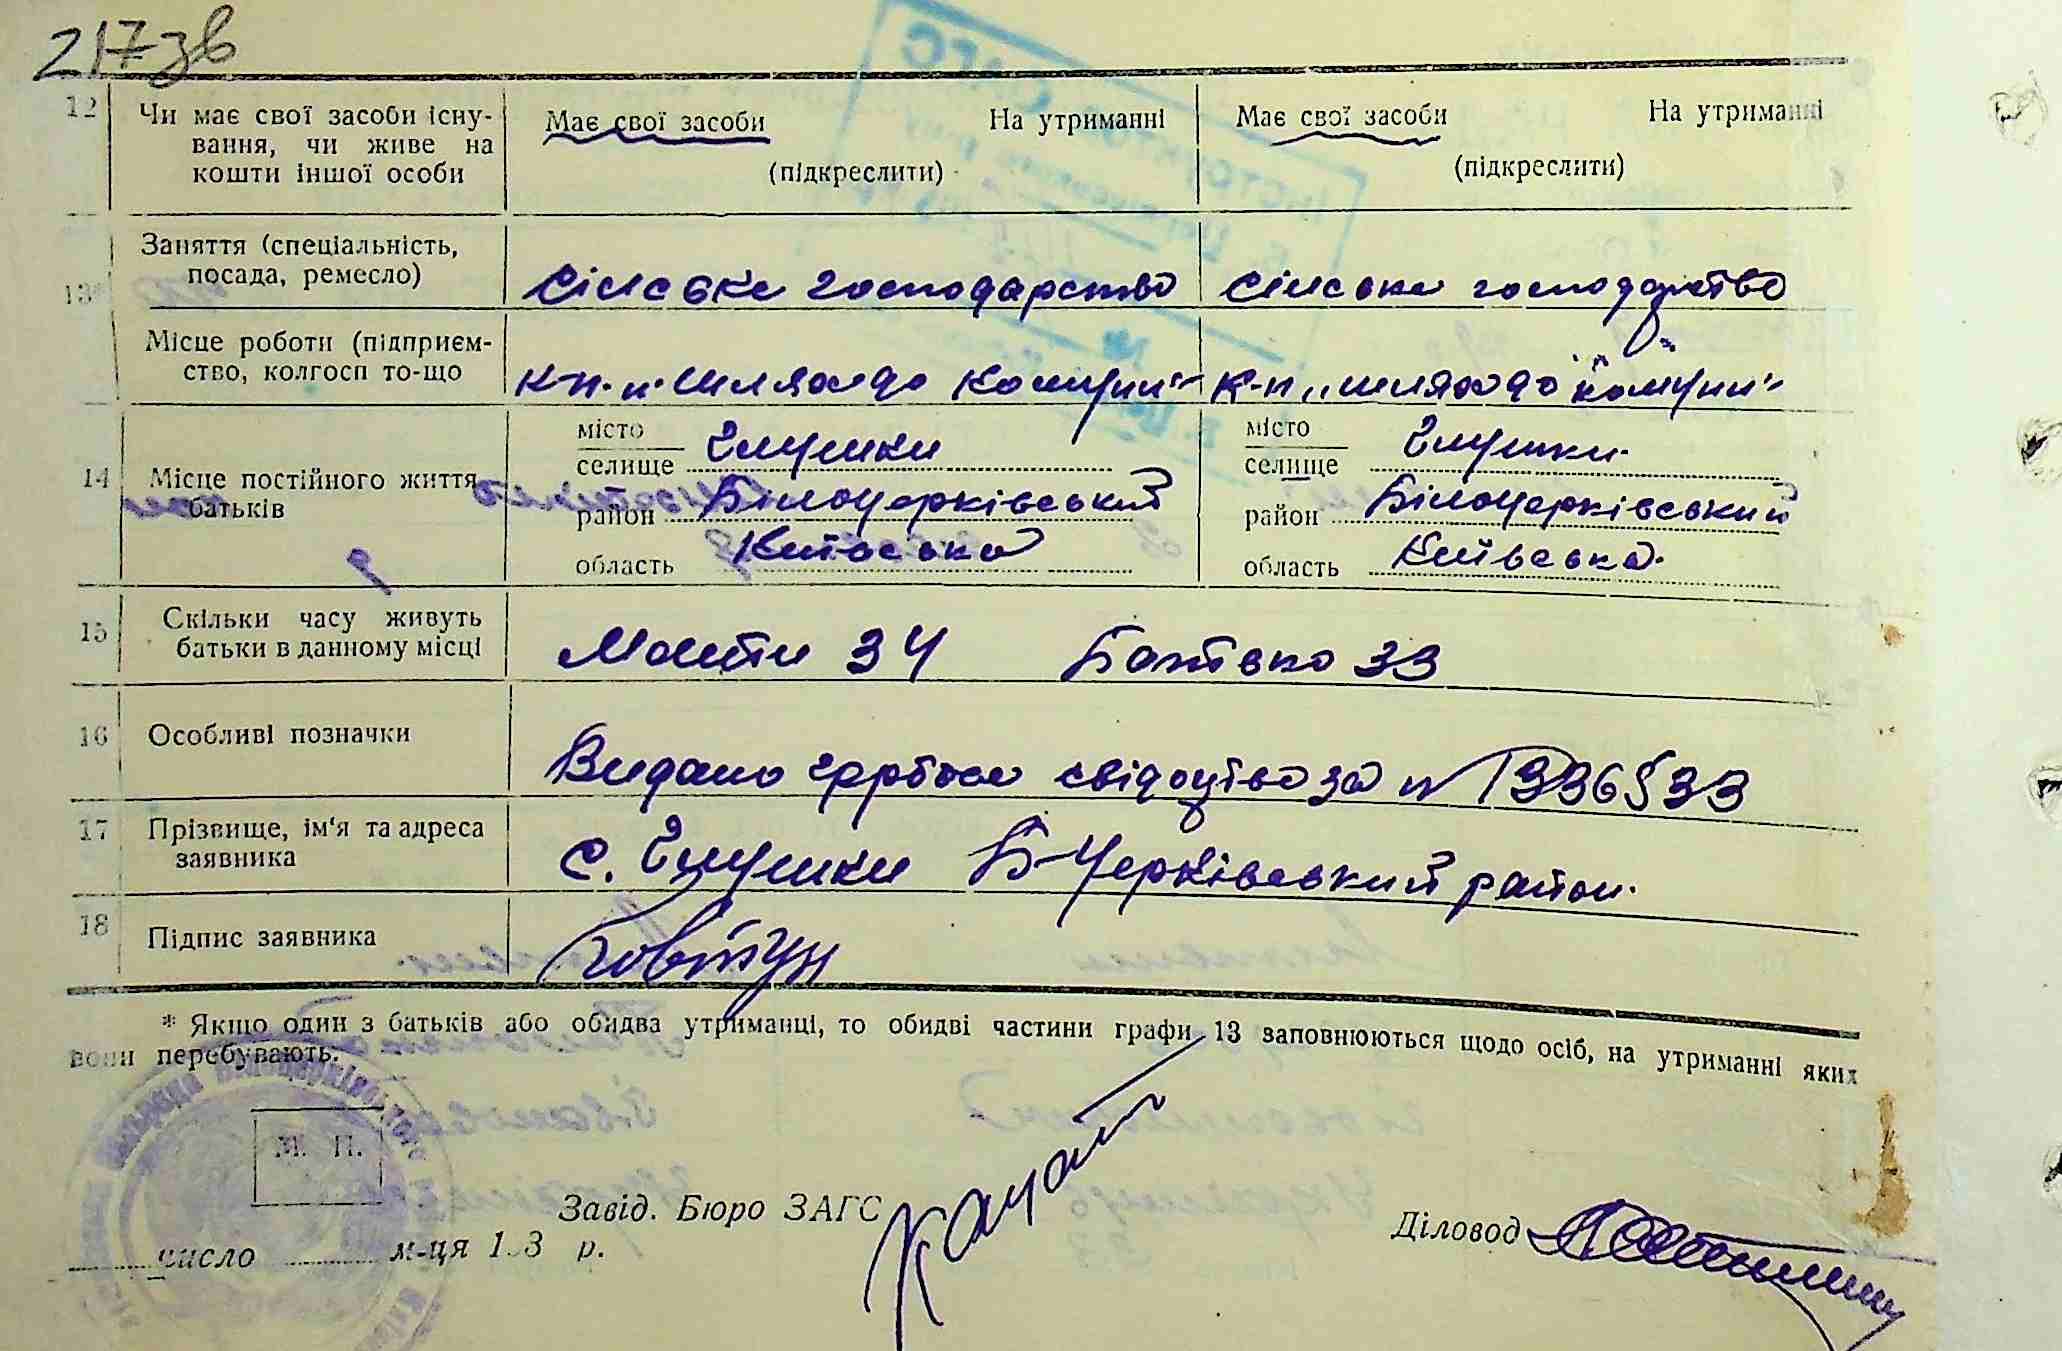 217 зв
12 Чи має свої засоби існу- Має свої засоби На утриманні Має свої засоби На утриманні
вання, чи живе на (підкреслити) (підкреслити)
кошти іншої особи
13* Заняття (спеціальність,
посада, ремесло) Сільське господарство Сільське господарство
Місце роботи (підприєм-
ство, колгосп то-що к-п. "Шлях до Комуни" к-п "Шлях до комуни"
14 Місце постійного життя батьків
місто селище Глушки місто селище Глушки
район Білоцерківський район Білоцерківський
область Київська область Київська
15 Скільки часу живуть
батьки в данному місці Мати 34 Батько 33
16 Особливі позначки Видано свідоцтво за №
17 Прізвище, ім'я та адреса
заявника с. Глушки Б-Церківський район.
18 Підпис заявника Ковтун
* Якщо один з батьків або обидва утриманці, то обидві частини графи 13 заповнюються щодо осіб, на утриманні яких
вони перебувають.
М. П.
Завід. Бюро ЗАГС
Діловод
число м-ця 193 р.